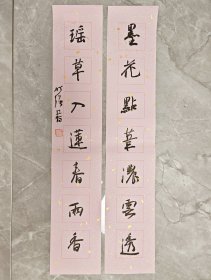 墨花點葉濃雲透
瑤草入蓮春雨香